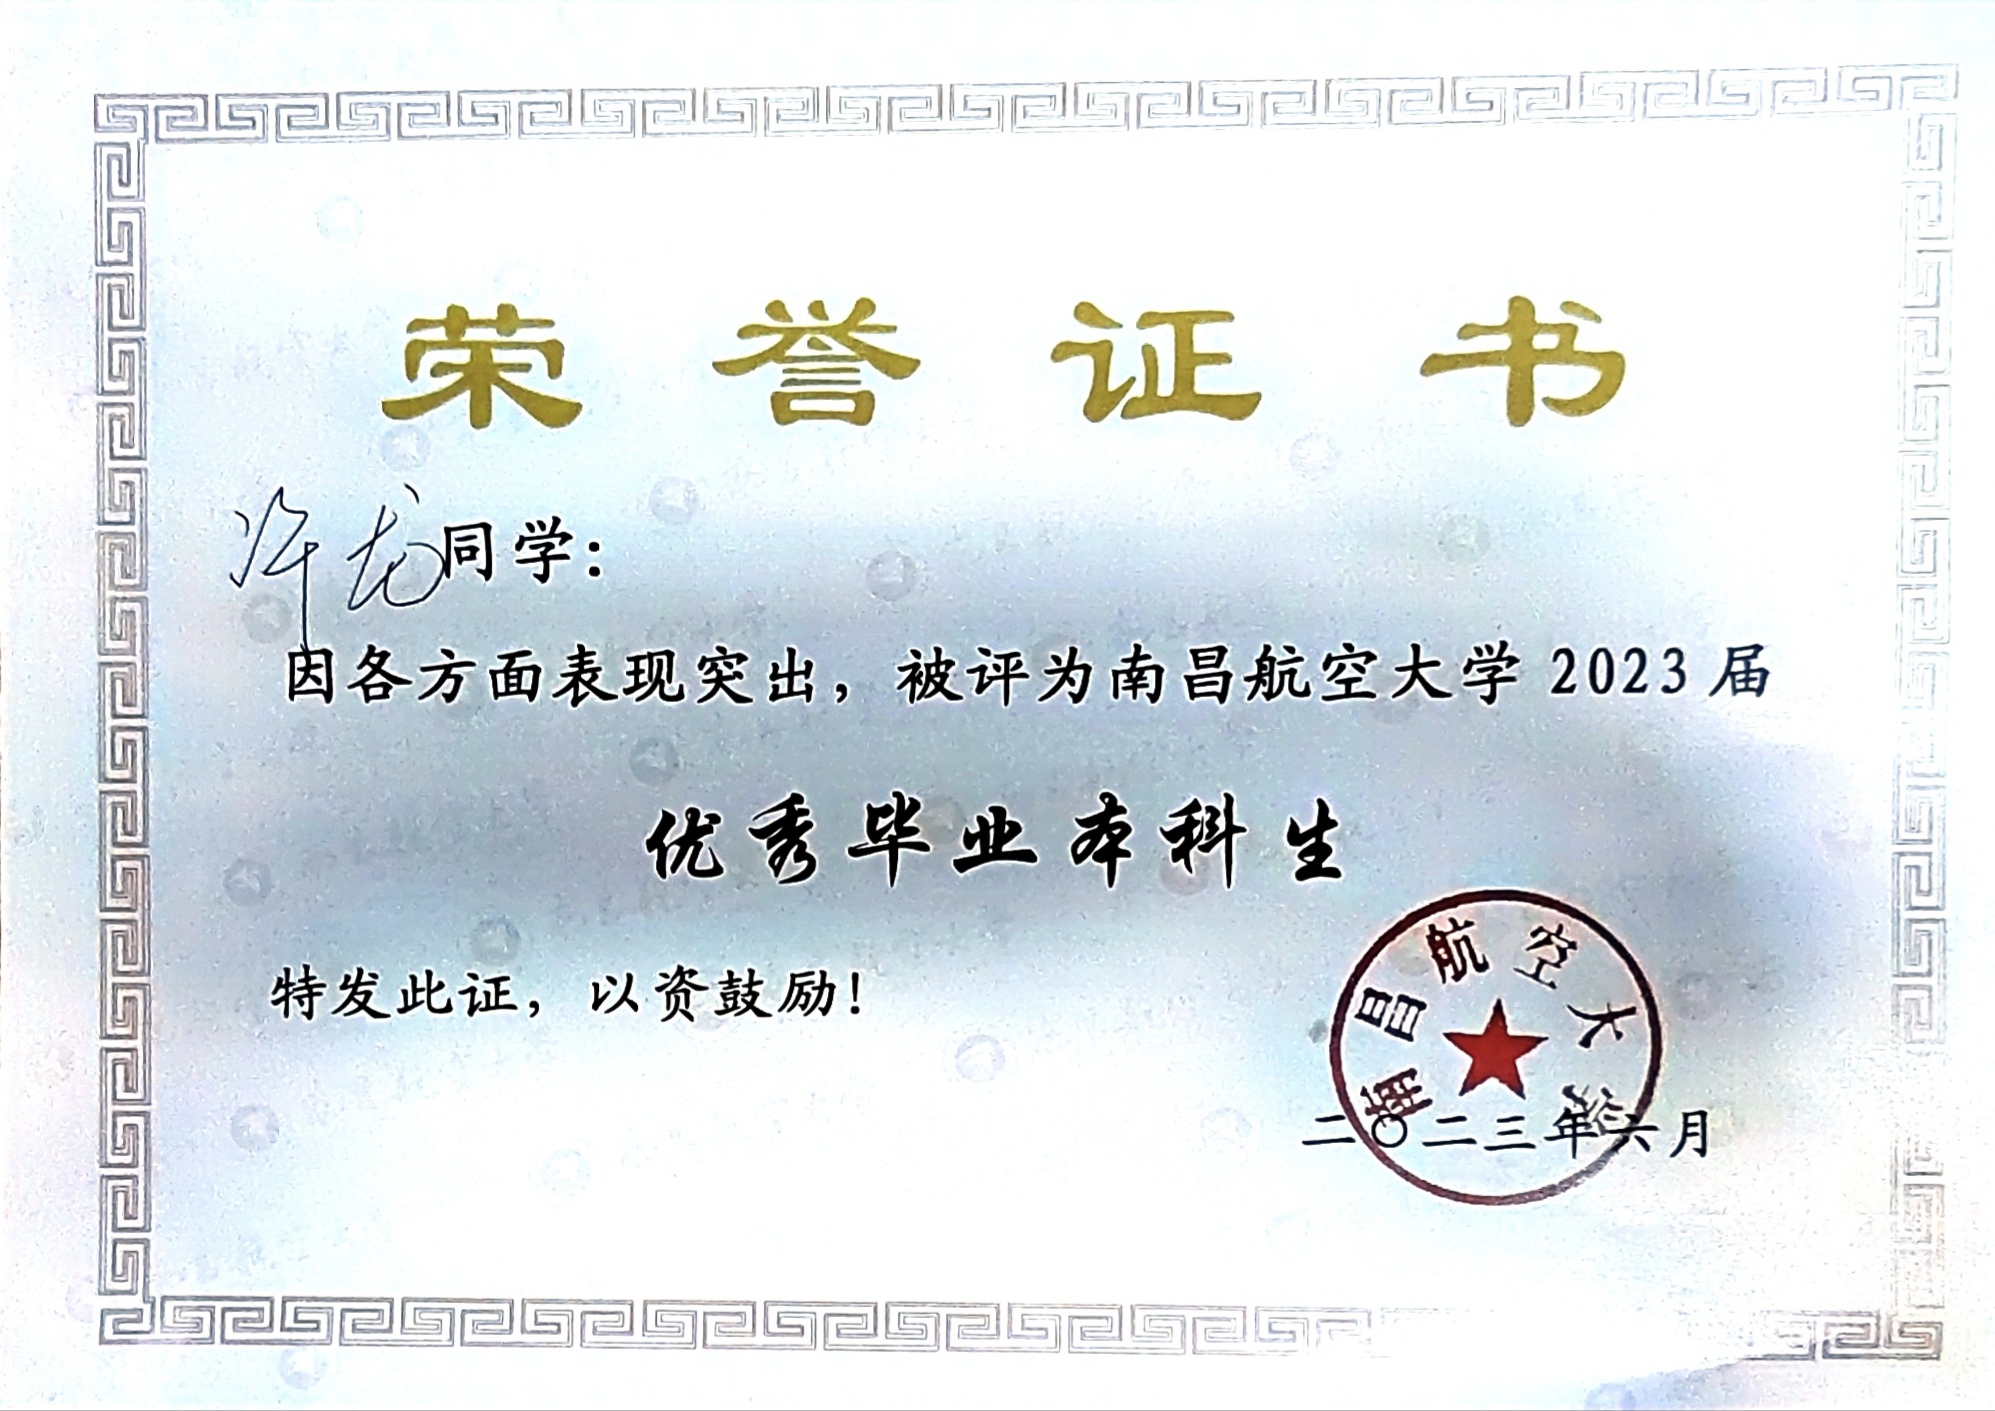 荣誉证书
许龙同学：
因各方面表现突出，被评为南昌航空大学 2023 届
优秀毕业本科生
特发此证，以资鼓励！
南昌航空大学
二〇二三年六月